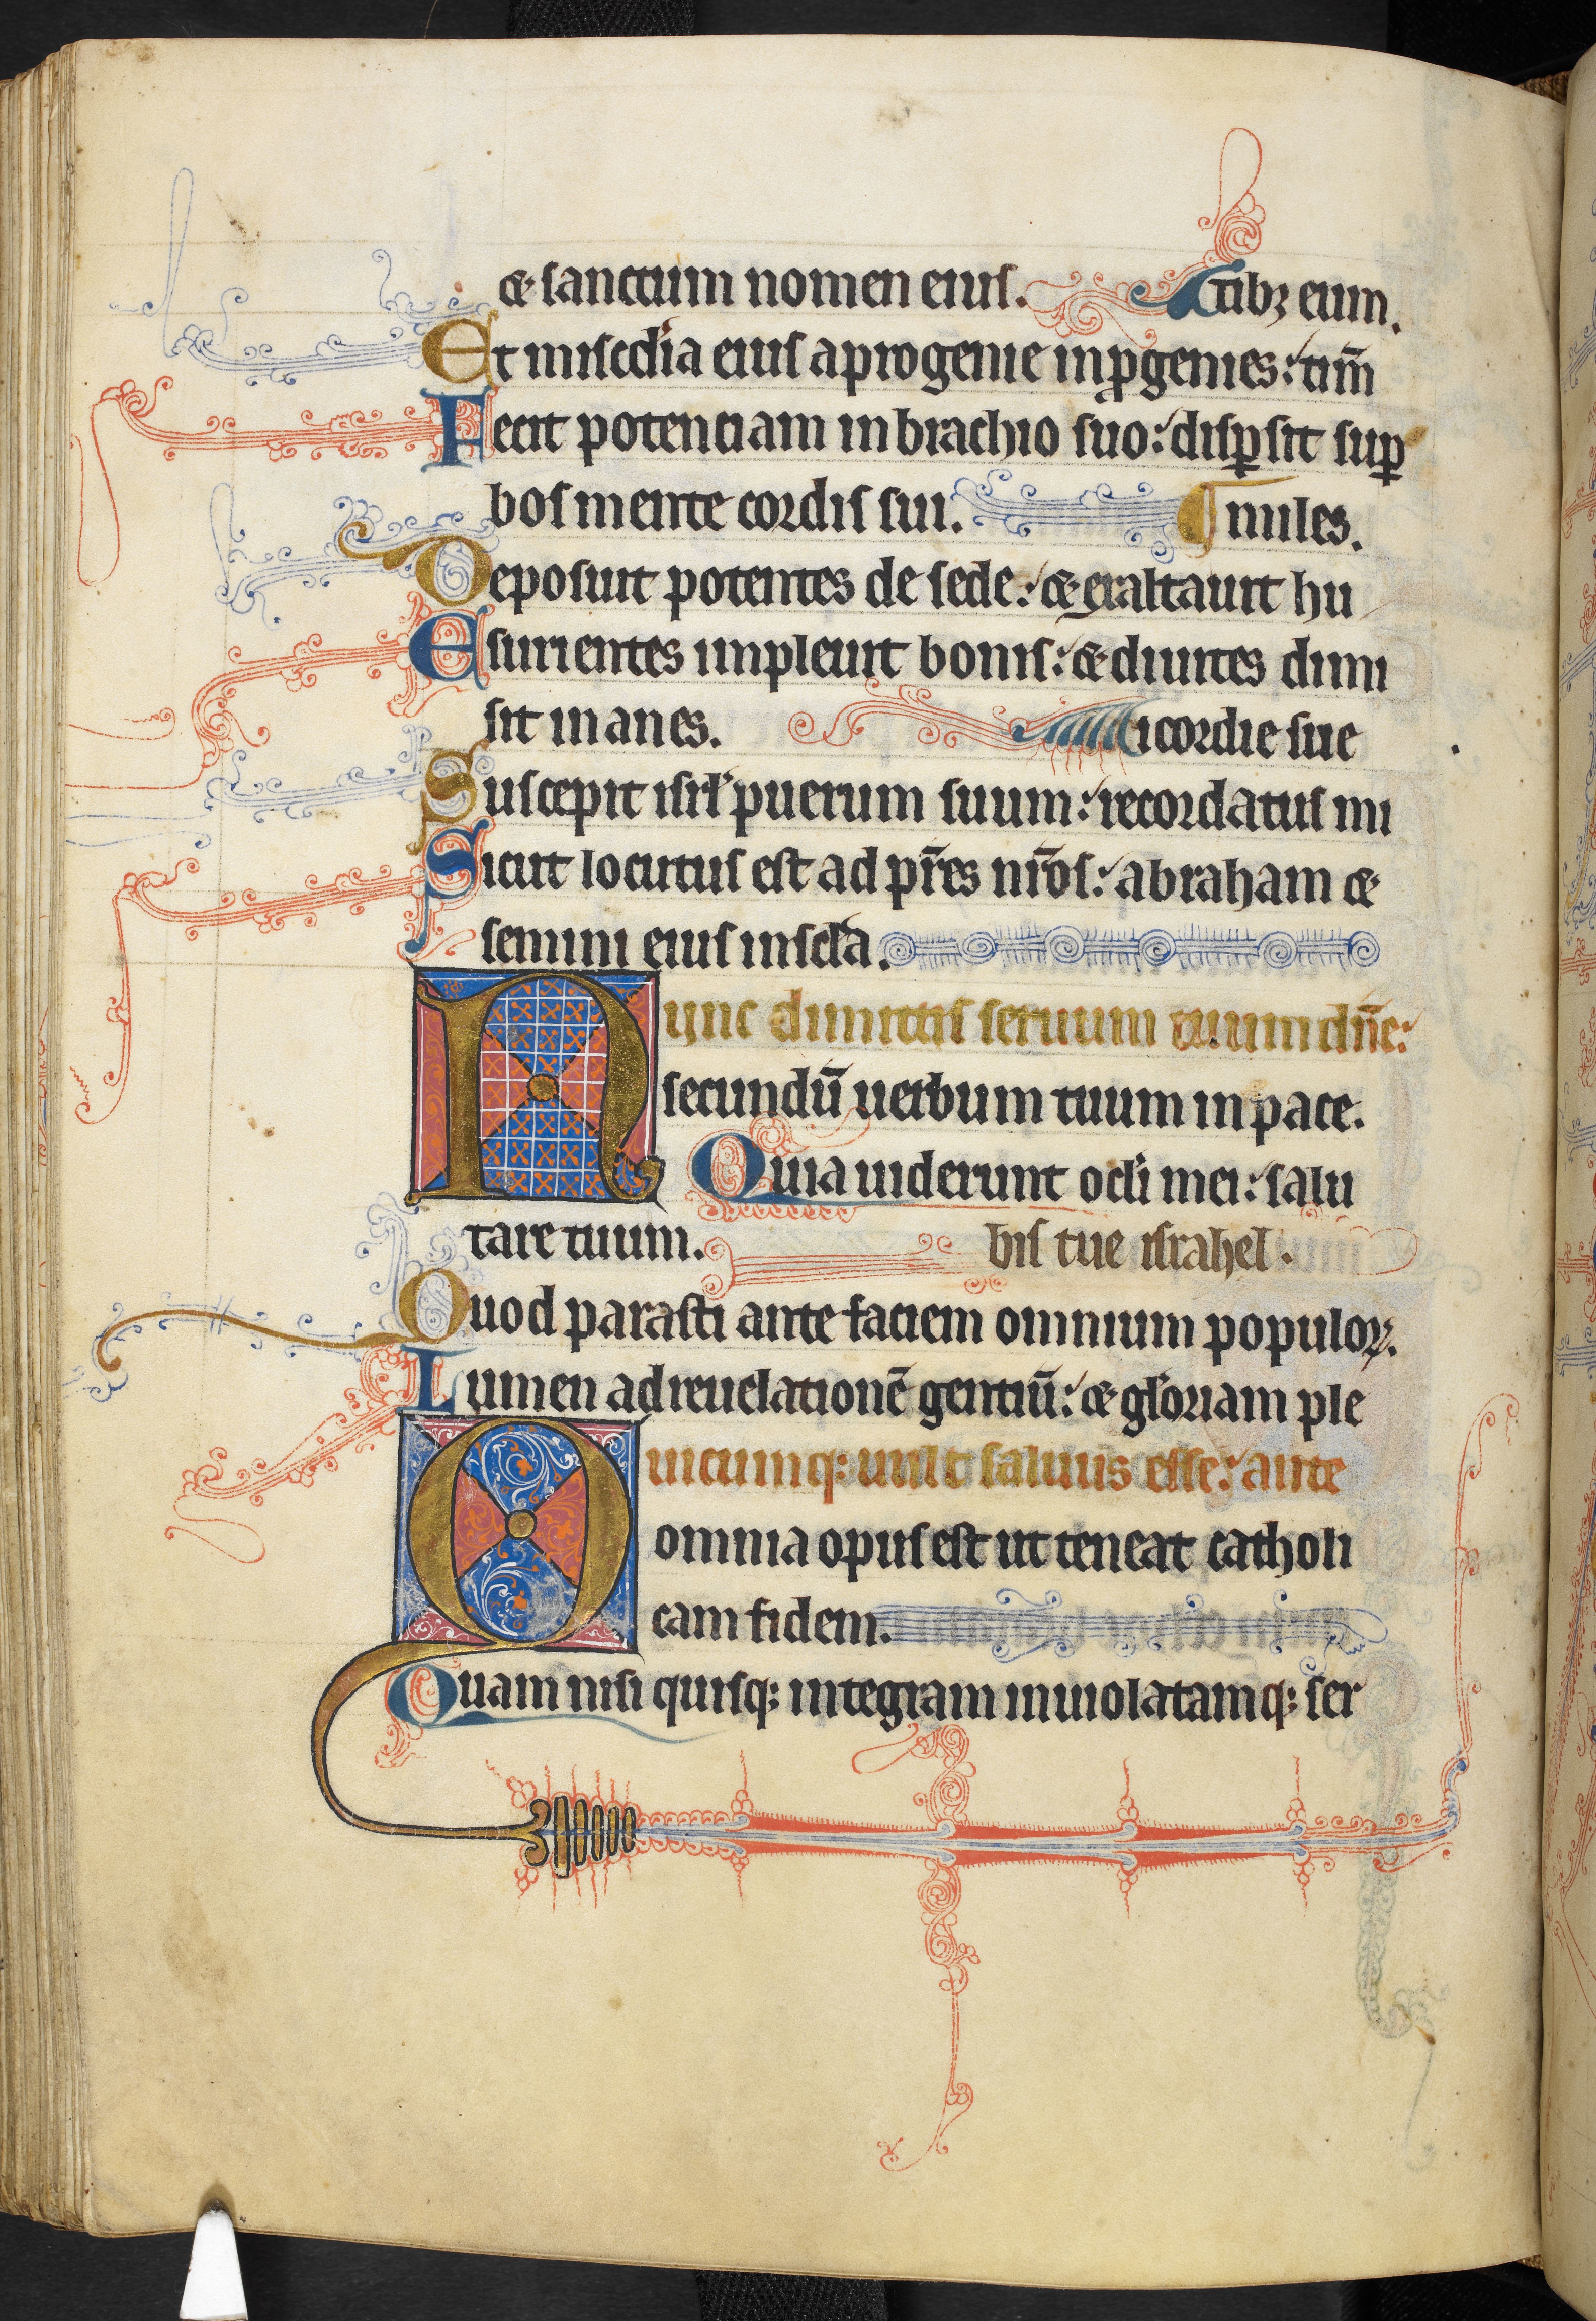 ⁊ sanctum nomen eius. tibꝫ eum.
Et misc̄dia eius a progenie in ꝓgenies: tim̄
Fecit potenciam in brachio suo: disꝑsit suꝑ
bos mente cordis sui. miles.
Deposuit potentes de sede: ⁊ exaltauit hu
Esurientes impleuit bonis: ⁊ diuites dimi
sit inanes. icordie sue
Suscepit isrl̓ puerum suum: recordatus mi
Sicut locutus est ad pr̄es nr̄os: abraham ⁊
semini eius in sc̄la.
Nunc dimittis seruum tuum dn̄e:
secundū uerbum tuum in pace.
Quia uiderunt oc̄li mei: salu
tare tuum. bis tue israhel.
Quod parasti ante faciem omnium populoꝝ.
Lumen ad reuelationē gentiū: ⁊ gl̓oriam ple
Quicumqꝫ uult saluus esse: ante
omnia opus est ut teneat catholi
cam fidem.
Quam nisi quisqꝫ integram inuiolatamqꝫ ser